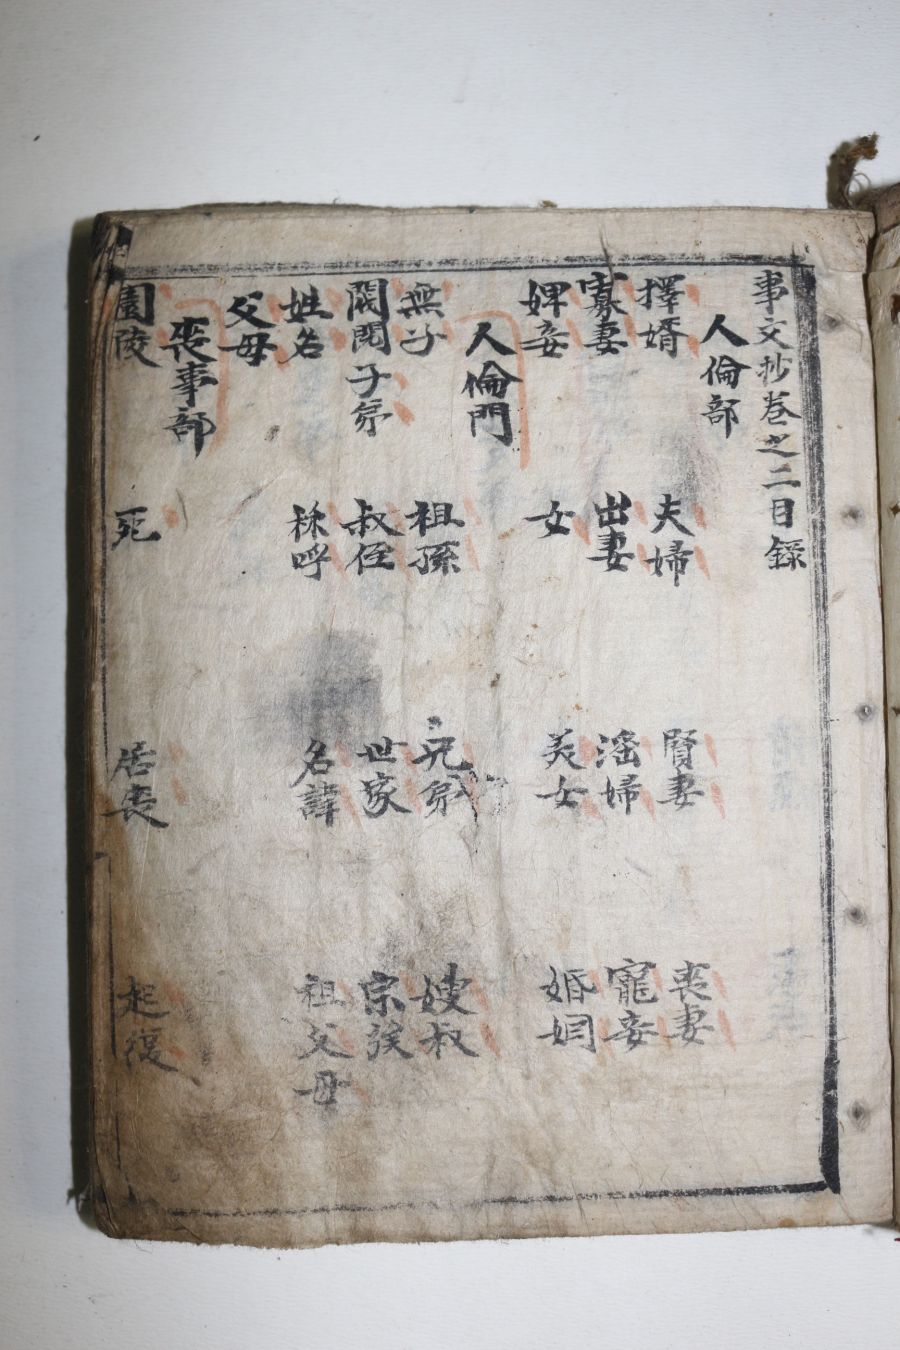 事文抄卷之二目錄
人倫部
擇婿 夫婦 賢妻 喪妻
寡妻 出妻 淫婦 寵妾
婢妾 女 美女 婚姻
人倫門
無子 祖孫 兄弟 嫂叔
閥閱子弟 叔侄 世家 宗族
姓名 稱呼 名諱 祖父母
父母
喪事部
園陵 死 居喪 起復